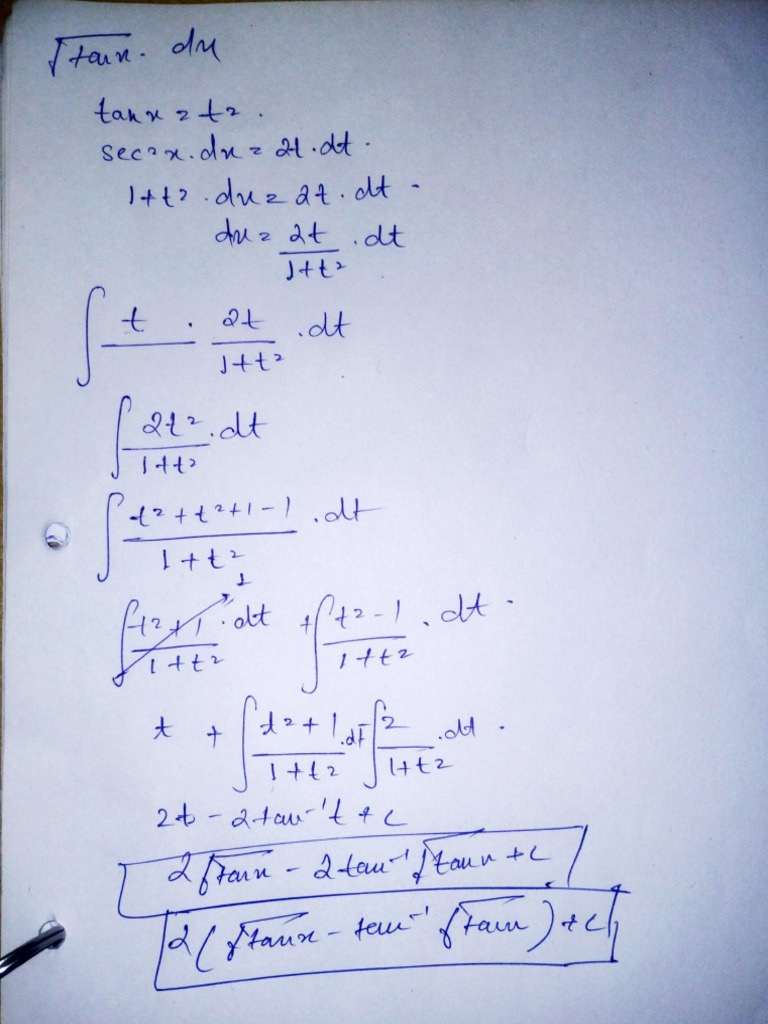 √tanx. dx
tanx = t².
sec²x.dx = 2t.dt.
1+t².dx = 2t.dt.
dx = 2t/1+t² .dt
∫ t . 2t/1+t² .dt
∫ 2t²/1+t² .dt
∫ t²+t²+1-1/1+t² .dt
∫ t²+1/1+t² .dt 1 + ∫ t²-1/1+t² .dt.
t + ∫ t²+1/1+t² .dt - ∫ 2/1+t² .dt.
2t - 2tan⁻¹t + c
2√tanx - 2tan⁻¹√tanx + c
2(√tanx - tan⁻¹√tanx) + c